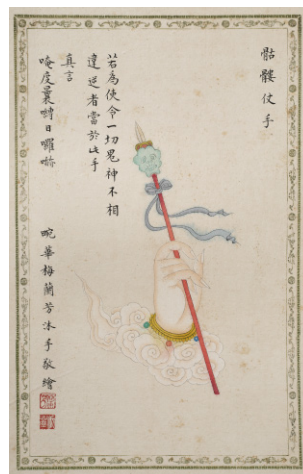 骷髏仗手
若為使令一切鬼神不相
違逆者當於此手
真言
唵度曩嚩日囉
畹華梅蘭芳沐手敬繪